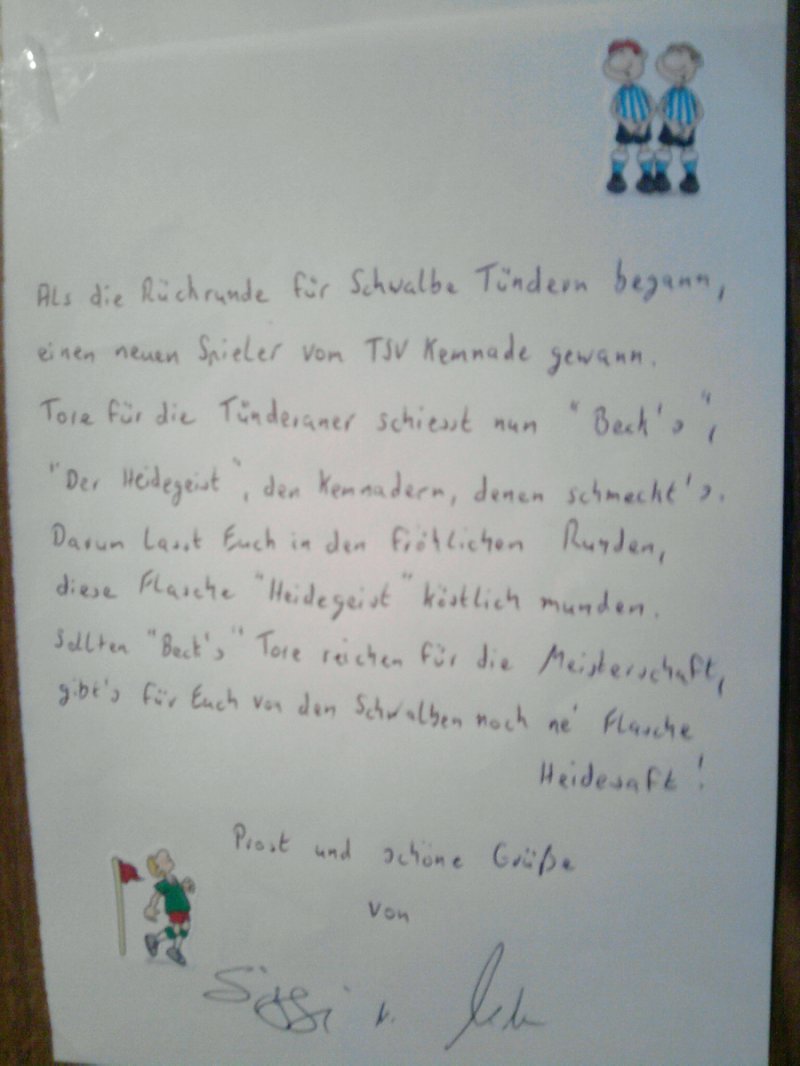 Als die Rückrunde für Schwalbe Tündern begann,
einen neuen Spieler vom TSV Kemnade gewann.
Tore für die Tünderaner schiesst nun "Beck's",
"Der Heidegeist", den Kemnadern, denen schmecht's.
Darum lasst Euch in den fröhlichen Runden,
diese Flasche "Heidegeist" köstlich munden.
Sollten "Beck's" Tore reichen für die Meisterschaft,
gibt's für Euch von den Schwalben noch ne' Flasche
Heidesaft!
Prost und schöne Grüße
von
Siggi